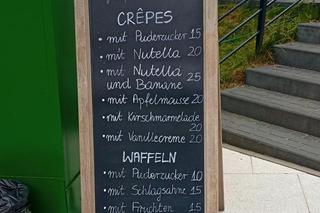 CRÊPES
• mit Puderzucker 15
• mit Nutella 20
• mit Nutella
und Banane 25
• mit Apfelmouse 20
• mit Kirschmarmelade
20
• mit Vanillecreme 20
WAFFELN
• mit Puderzucker 10
• mit Schlagsahne 15
• mit Früchten 15